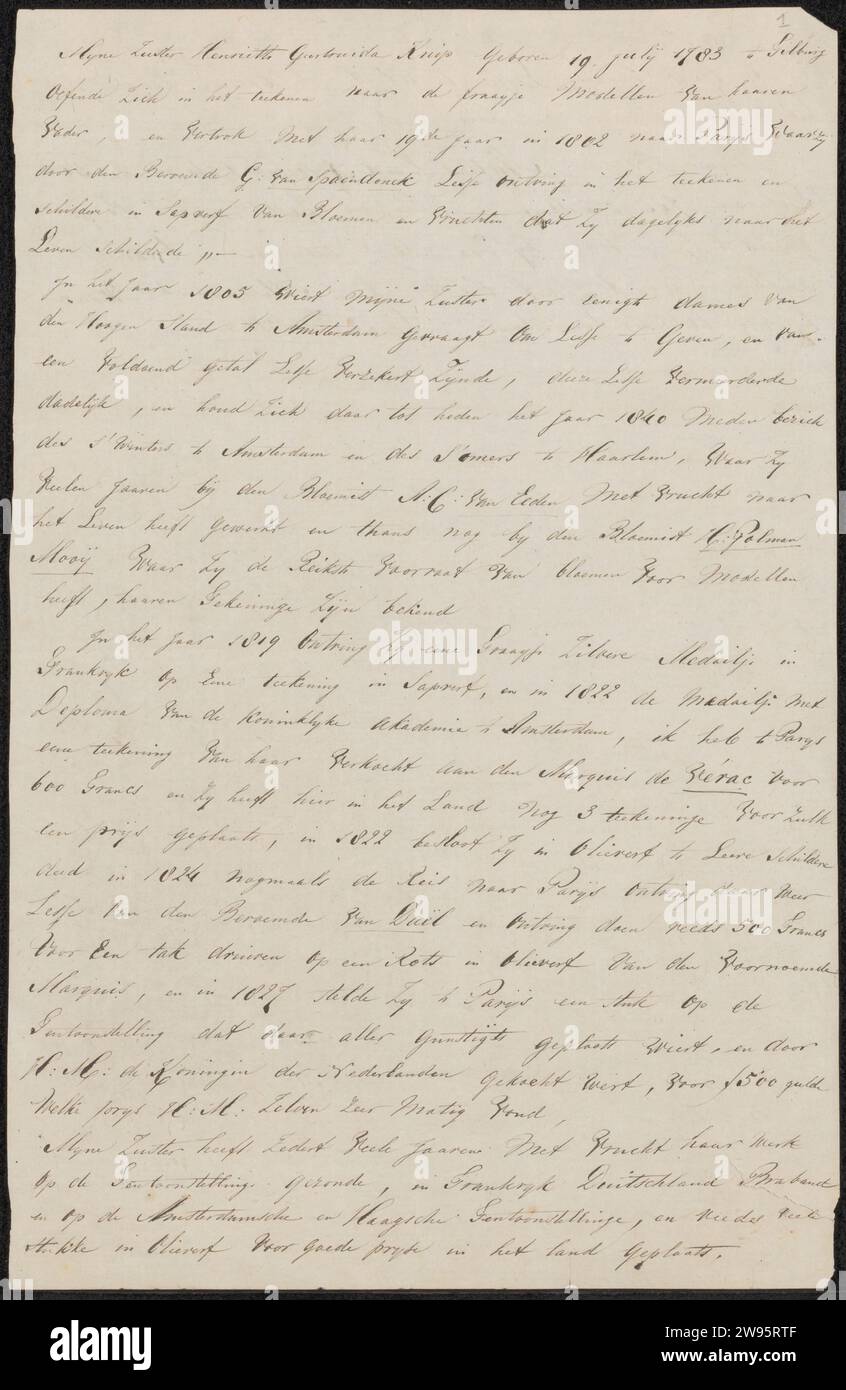 1
Myne Zuster Henrietta Geertruida Knip Geboren 19. july 1783 te Tilburg
Oefende Zich in het teekenen naar de fraaije Modellen van haaren
Vader, en Vertrok Met haar 19de Jaar in 1802 naar Parys Waar zy
door den Beroemde G: van Spaendonck Lesse ontving in het teekenen en
schildere in Sapverf Van Bloemen en Vruchten dat Zy dagelyks naar het
Leven schilderde
In het Jaar 1805 Wiert mijne Zuster door eenige dames van
den Hoogen Stand te Amsterdam gevraagt om Lesse te Geven, en van
een Voldoend getal Lesse Verzekert Zijnde, deeze Lesse Vermeerderde
dadelijk, en houd Zich daar tot heden het Jaar 1840 Meden bezich
des s'Winters te Amsterdam en des S'omers te Haarlem, Waar Zy
Veelen Jaaren bij den Bloemist A: C: van Eeden Met Vrucht naar
het Leven heeft gewerkt en thans nog by den Bloemist H: Polman
Mooij Waar Zy de Rijkste Voorraat Van bloemen Voor Modellen
heeft, haaren Tekeninge Zijn bekend
In het Jaar 1819 Ontving Zy eene Fraaije Zilvere Medailje in
Frankryk op Eene teekening in Sapverf, en in 1822 de Medailje Met
Deploma Van de Koninklyke akademie te Amsterdam, ik heb te Parys
eene teekening Van haar Verkocht aan den Marquis de Vérac Voor
600 Francs en Zy heeft hier in het Land nog 3 teekeninge Voor Zulk
een prijs geplaatst, in 1822 besloot Zy in Olieverf te Leere Schildere
deed in 1824 nogmaals de Reis naar Parijs ontving daar Weer
Lesse Van den Beroemde Van Dael en Ontving doen reeds 500 Francs
Voor Een tak druiven op een Rots in Olieverf Van den Voornoemde
Marquis, en in 1827 stelde Zy te Parijs een stuk op de
Tentoonstelling dat daar aller gunstigts geplaatst Wiert, en door
H: M: de Koningin der Nederlanden gekocht Wiert, Voor f500 gulde
Welke prys H: M: Zelven Zeer Matig Vond,
Myne Zuster heeft Zedert Veele Jaaren Met Vrucht haar Werk
op de Tentoonstellinge gezonde, in Frankryk Duitschland Braband
en op de Amsterdamsche en Haagsche Tentoonstellinge, en reedes Veele
stukke in Olieverf Voor goede pryse in het land geplaats.
alamy
alamy
Image ID: 2W95RTF
www.alamy.com